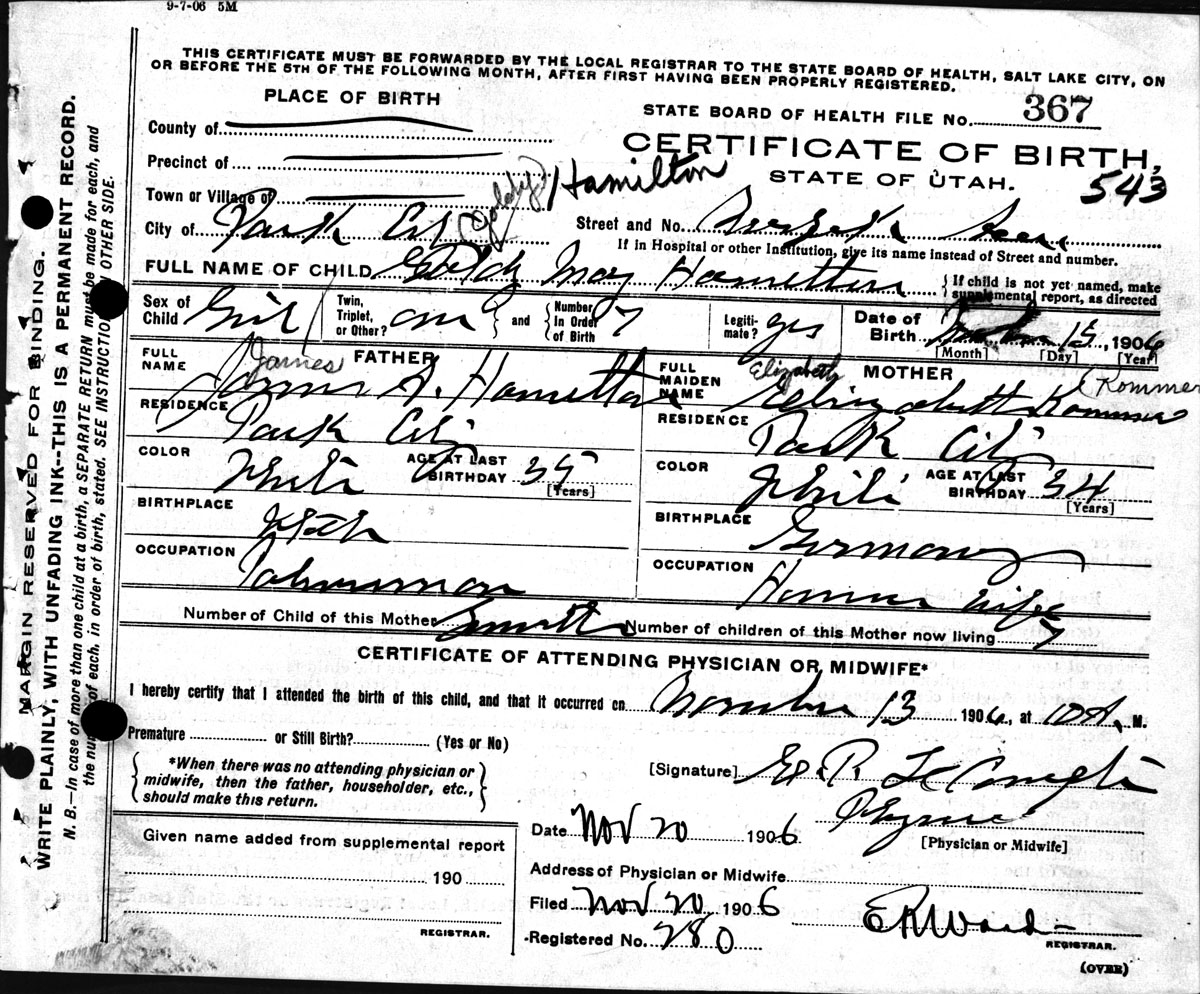 9-7-06 5M
THIS CERTIFICATE MUST BE FORWARDED BY THE LOCAL REGISTRAR TO THE STATE BOARD OF HEALTH, SALT LAKE CITY, ON
OR BEFORE THE 5TH OF THE FOLLOWING MONTH, AFTER FIRST HAVING BEEN PROPERLY REGISTERED.
PLACE OF BIRTH
STATE BOARD OF HEALTH FILE No. 367
County of
CERTIFICATE OF BIRTH,
Precinct of
STATE OF UTAH.
543
Town or Village of
Goldy Hamilton
City of Park City
Street and No.
If in Hospital or other Institution, give its name instead of Street and number.
FULL NAME OF CHILD Goldy May Hamelton
{ If child is not yet named, make supplemental report, as directed
Sex of Child Girl
Twin, Triplet, or Other? one } and { Number In Order of Birth 7
Legitimate? yes
Date of Birth 15, 1906
[Month] [Day] [Year]
FATHER
FULL NAME James A. Hamelton
James
RESIDENCE Park City
COLOR White
AGE AT LAST BIRTHDAY 35
[Years]
BIRTHPLACE Utah
OCCUPATION
MOTHER
FULL MAIDEN NAME Kommer
Elizabeth
(Kommer
RESIDENCE Park City
COLOR White
AGE AT LAST BIRTHDAY 34
[Years]
BIRTHPLACE Germany
OCCUPATION House wife
Number of Child of this Mother
Number of children of this Mother now living 7
CERTIFICATE OF ATTENDING PHYSICIAN OR MIDWIFE*
I hereby certify that I attended the birth of this child, and that it occurred on November 13 1906, at 10 A. M.
Premature or Still Birth? (Yes or No)
{ *When there was no attending physician or
midwife, then the father, householder, etc.,
should make this return. }
[Signature] E. P. Le Compte
[Physician or Midwife]
Date Nov 20 1906
Given name added from supplemental report
190
REGISTRAR.
Address of Physician or Midwife
Filed Nov 20 1906
E R Ward
REGISTRAR.
-Registered No. 280
(OVER)
MARGIN RESERVED FOR BINDING.
WRITE PLAINLY, WITH UNFADING INK--THIS IS A PERMANENT RECORD.
N. B.—In case of more than one child at a birth, a SEPARATE RETURN must be made for each, and
the number of each, in order of birth, stated. SEE INSTRUCTIONS OTHER SIDE.